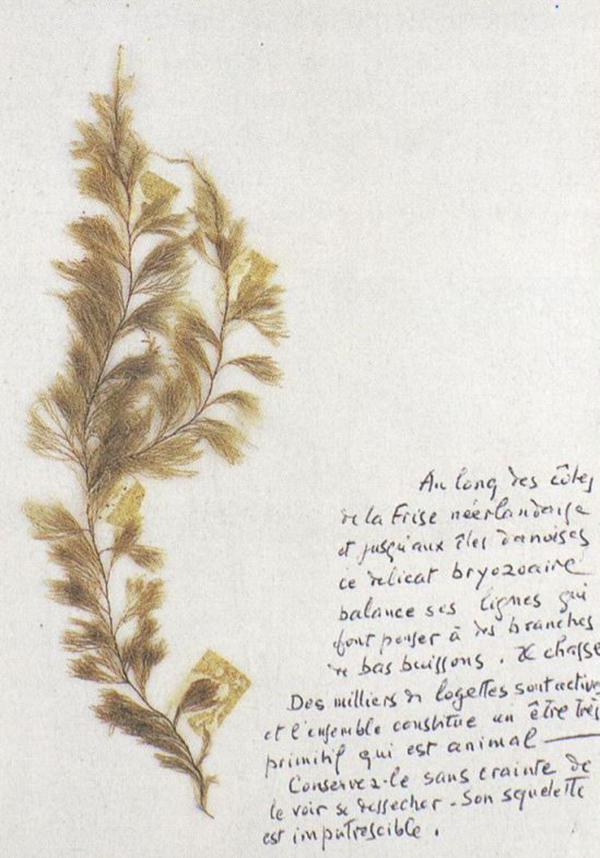 Au long des côtes
de la Frise néerlandaise
et jusqu'aux îles danoises
ce délicat bryozoaire
balance ses lignes qui
font penser à des branches
de bas buissons. Il chasse
Des milliers de logettes sont actives
et l'ensemble constitue un être très
primitif qui est animal —
Conservez-le sans crainte de
le voir se dessécher - Son squelette
est imputrescible.